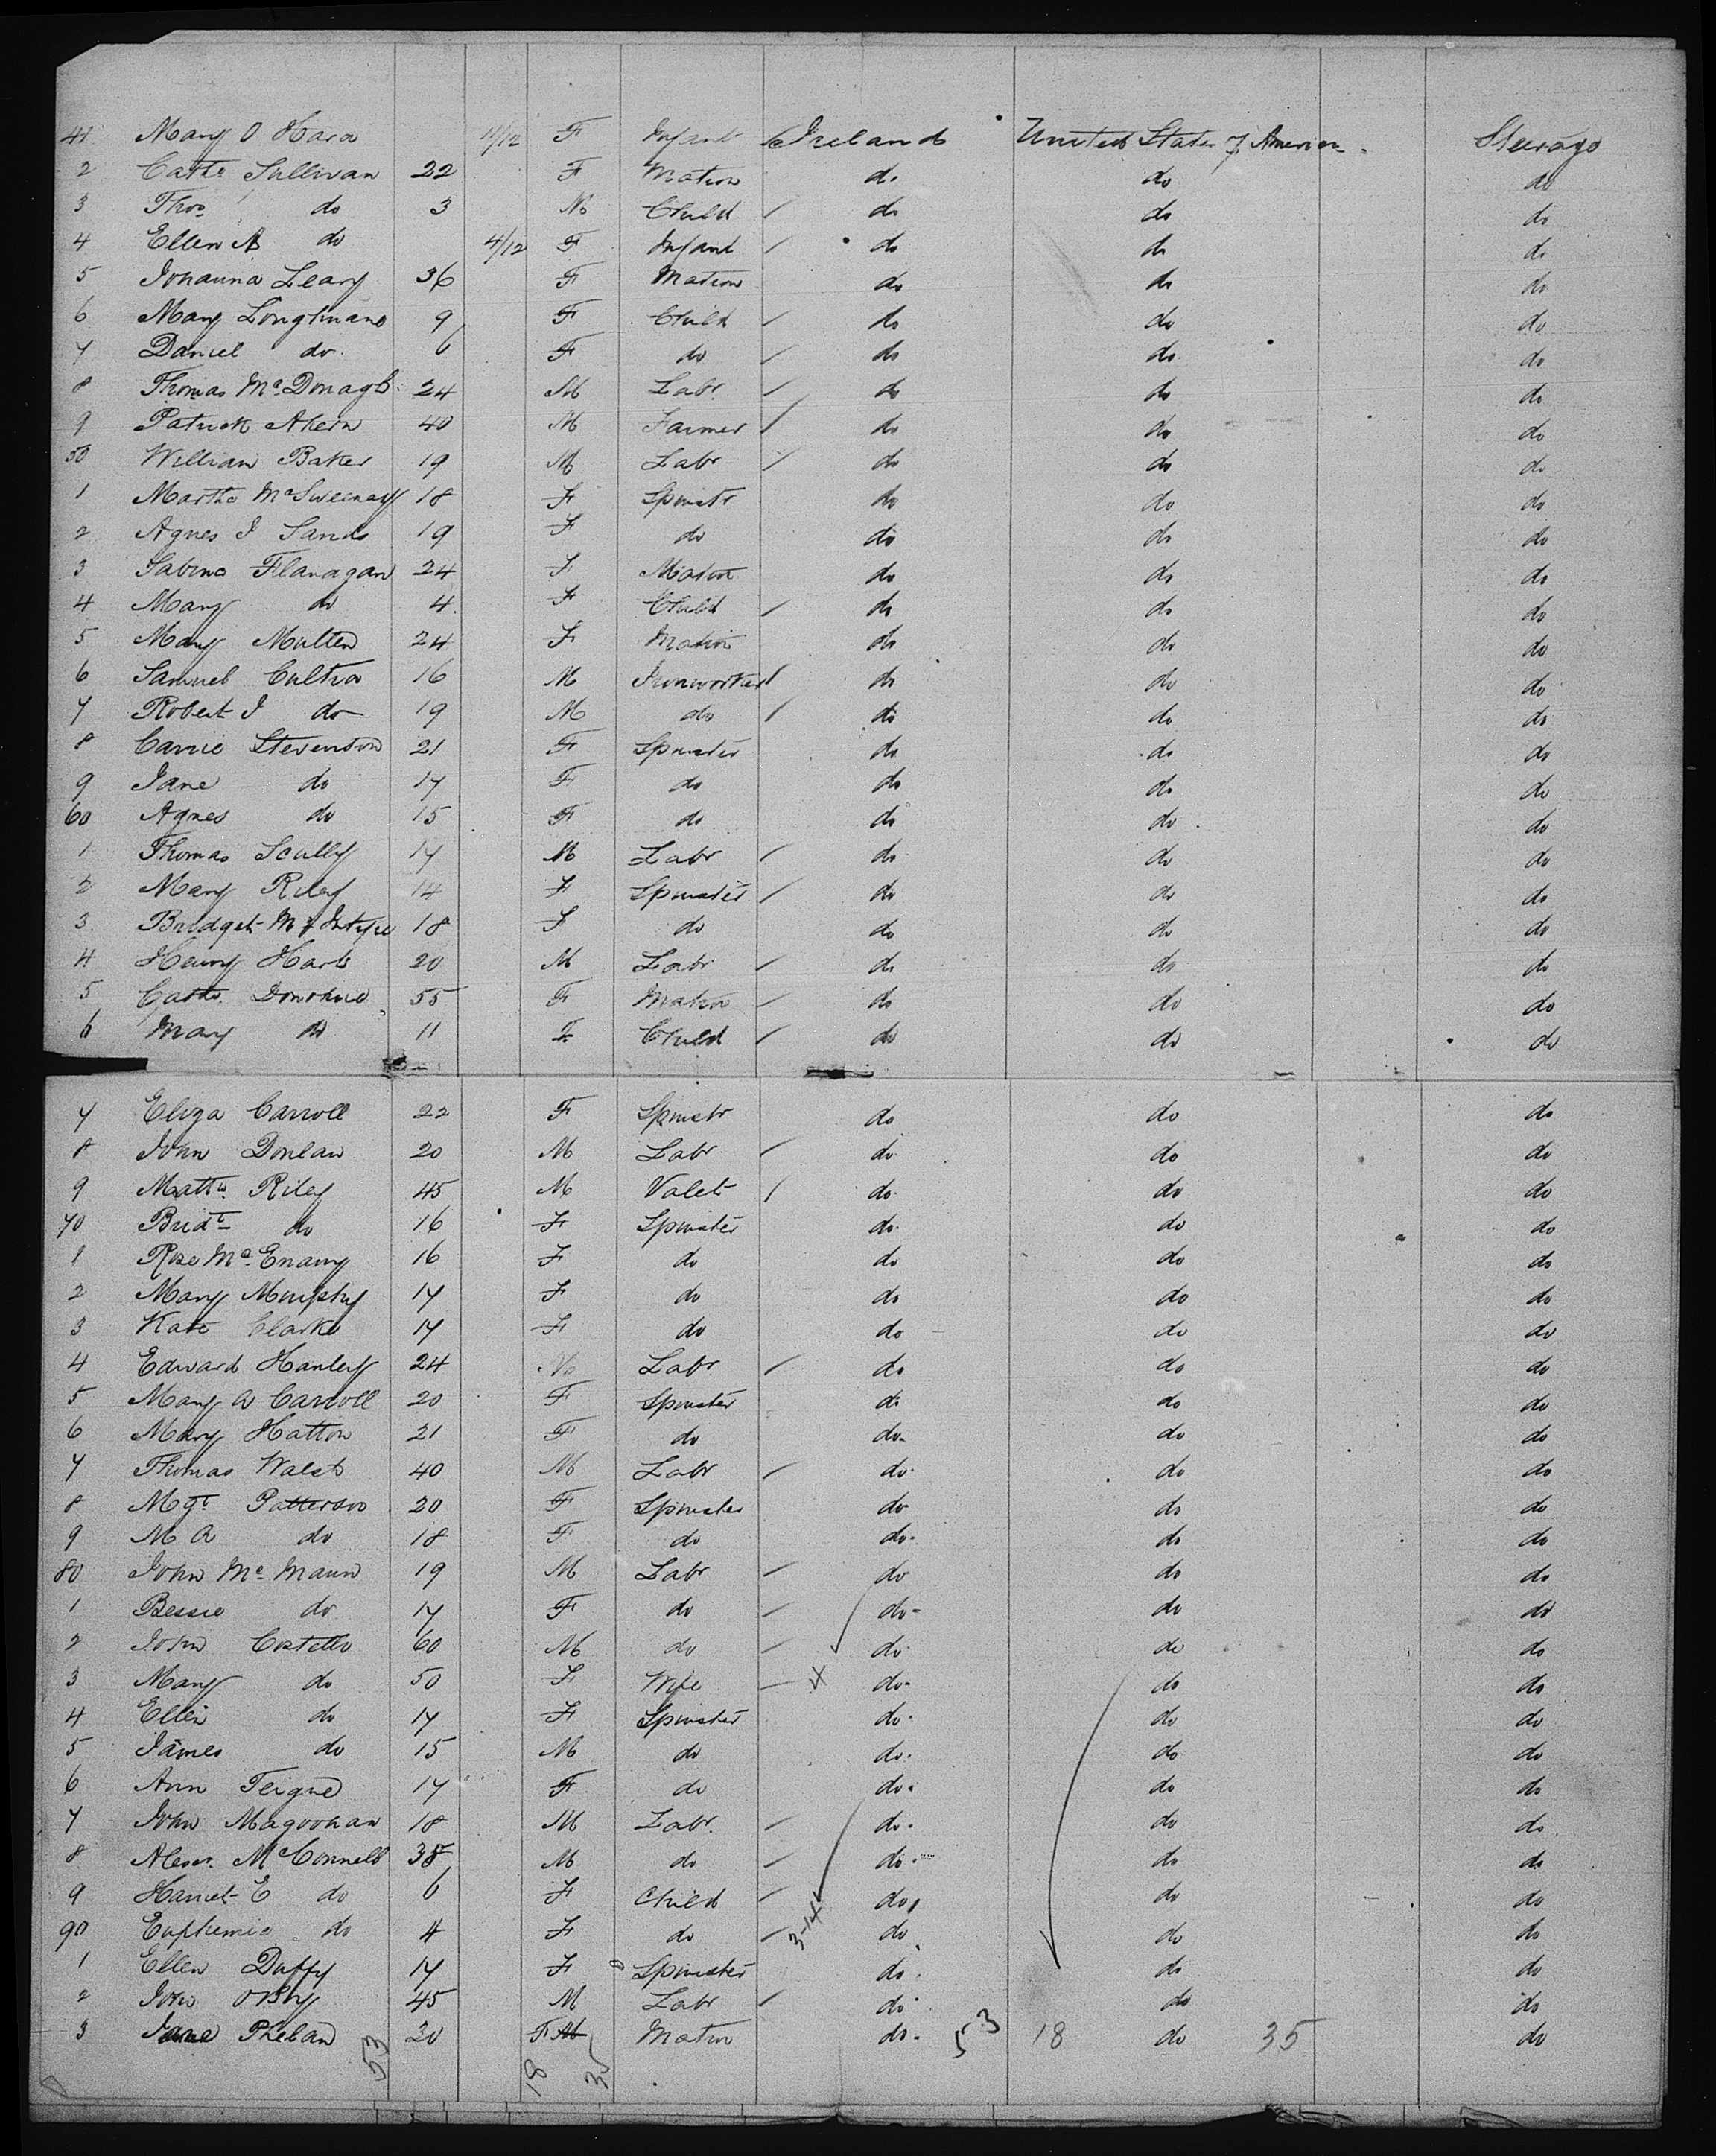 41 Mary O Hara 11/12 F Infant Ireland United States of America Steerage
2 Cathe Sullivan 22 F Matron do do do
3 Thos do 3 M Child do do do
4 Ellen A do 4/12 F Infant do do do
5 Johanna Leary 36 F Matron do do do
6 Mary Longhnane 9 F Child do do do
7 Daniel do 6 F do do do do
8 Thomas McDonagh 24 M Labr do do do
9 Patrick Ahern 40 M Farmer do do do
50 William Baker 19 M Labr do do do
1 Martha McSweeney 18 F Spinstr do do do
2 Agnes J Sands 19 F do do do do
3 Sabina Flanagan 24 F Matrn do do do
4 Mary do 4 F Child do do do
5 Mary Mullen 24 F Matron do do do
6 Samuel Cultra 16 M Ironworker do do do
7 Robert J do 19 M do do do do
8 Carrie Stevenson 21 F Spinster do do do
9 Jane do 17 F do do do do
60 Agnes do 15 F do do do do
1 Thomas Scully 17 M Labr do do do
2 Mary Riley 14 F Spinster do do do
3 Bridget McIntyre 18 F do do do do
4 Henry Hart 20 M Labr do do do
5 Cathe Donohue 55 F Matrn do do do
6 Mary do 11 F Child do do do
7 Eliza Carroll 22 F Spinstr do do do
8 John Donlan 20 M Labr do do do
9 Mattw Riley 45 M Valet do do do
70 Bridt do 16 F Spinster do do do
1 Rose McEnany 16 F do do do do
2 Mary Murphy 17 F do do do do
3 Kate Clarke 17 F do do do do
4 Edward Hanley 24 M Labr do do do
5 Mary A Carroll 20 F Spinster do do do
6 Mary Hatton 21 F do do do do
7 Thomas Walsh 40 M Labr do do do
8 Mgt Patterson 20 F Spinster do do do
9 M A do 18 F do do do do
80 John McMann 19 M Labr do do do
1 Bessie do 17 F do do do do
2 John Costello 60 M do do do do
3 Mary do 50 F Wife 4 do do do
4 Ellen do 17 F Spinster do do do
5 James do 15 M do do do do
6 Ann Teigue 17 F do do do do
7 John Magoohan 18 M Labr do do do
8 Alexr McConnell 38 M do do do do
9 Harriet E do 6 F Child do do do
90 Euphemia do 4 F do 3-14 do do do
1 Ellen Duffy 17 F Spinster do do do
2 John 45 M Labr do do do
3 Jane Phelan 20 F M Matrn do 53 18 do 35 do
53 18 35